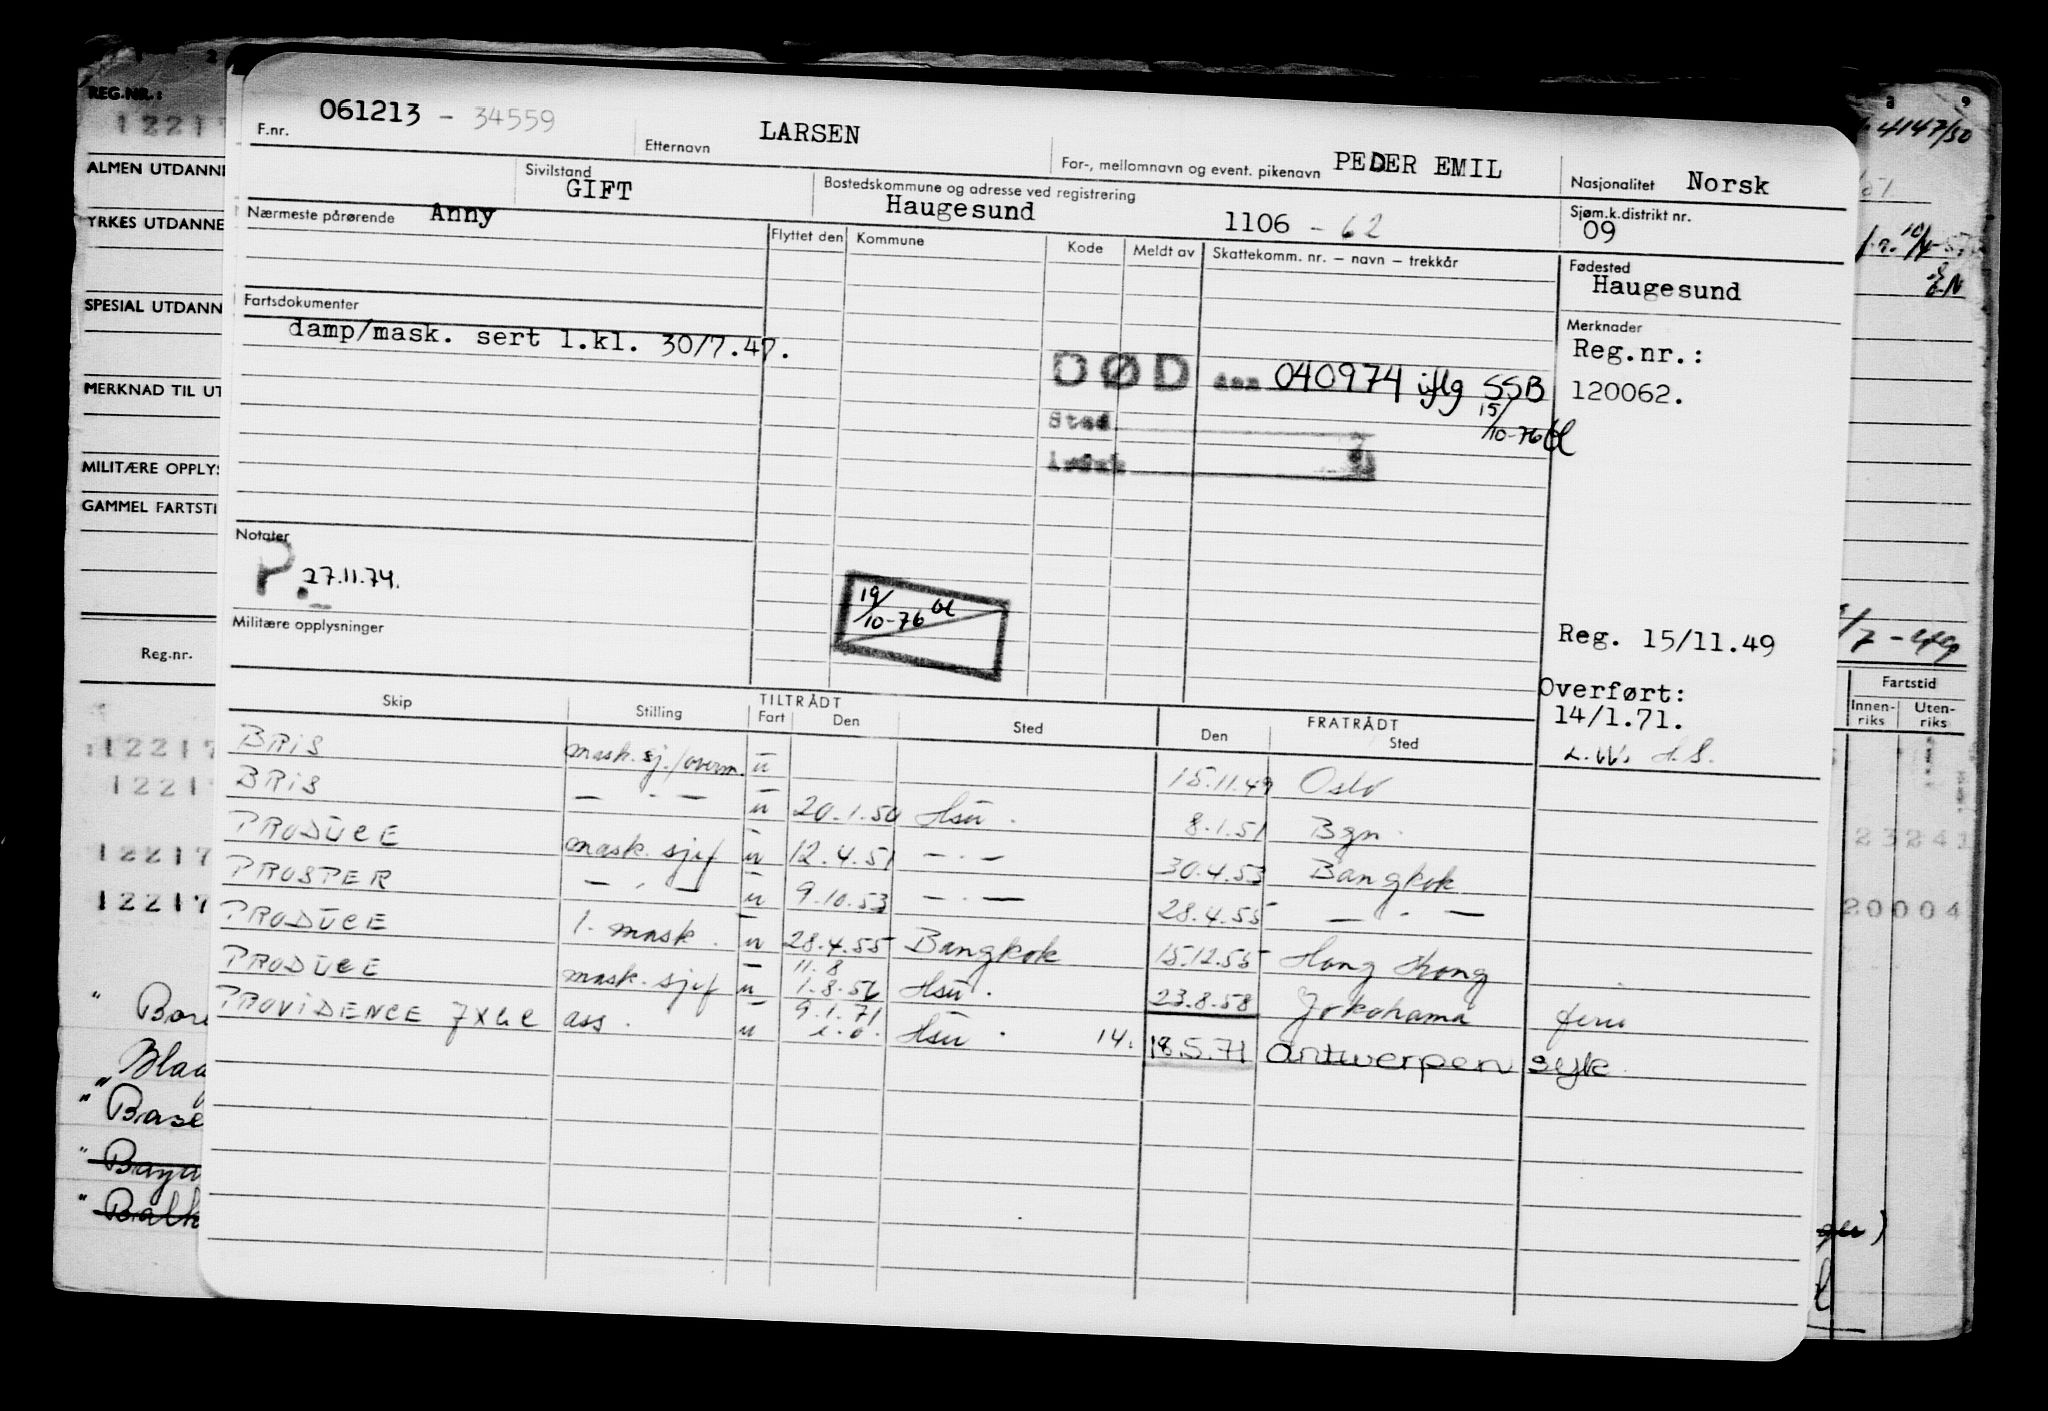 REG.NR.:
12217
ALMEN UTDANNE
YRKES UTDANNE
SPESIAL UTDANN
MERKNAD TIL UT
MILITÆRE OPPLYS
GAMMEL FARTSTI
Reg.nr.
12217
12217
12217
12217
" Blaa
" Base
F.nr. 061213 - 34559 Etternavn LARSEN For-, mellomnavn og event. pikenavn PEDER EMIL Nasjonalitet Norsk
Sivilstand GIFT Bostedskommune og adresse ved registrering Haugesund 1106 - 62 Sjøm.k.distrikt nr. 09
Nærmeste pårørende Anny Flyttet den Kommune Kode Meldt av Skattekomm. nr. – navn – trekkår Fødested Haugesund
Fartsdokumenter
damp/mask. sert 1.kl. 30/7.47.
Merknader
Reg.nr.:
120062.
DØD den 040974 iflg SSB
15/10-76
Sted
Notater
P. 27.11.74.
19/10-76
Militære opplysninger
Reg. 15/11.49
Overført:
14/1.71.
Skip Stilling TILTRÅDT Fart Den Sted FRATRÅDT Den Sted
BRIS mask.sj./overm. u 15.11.49 Oslo
BRIS — · — u 20.1.50 Hsu. 8.1.51 Bgn.
PRODUCE mask. sjef u 12.4.51 — · — 30.4.53 Bangkok
PROSPER — · — u 9.10.53 — · — 28.4.55 — · —
PRODUCE 1. mask. u 28.4.55 Bangkok 15.12.55 Hong Kong
PRODUCE mask. sjef u 11.8 1.8.56 Hsu. 23.8.58 Yokohama ferie
PROVIDENCE 7XGC ass. u 9.1.71 Hsu. 14. 18.5.71 Antwerpen syk
8 9
4147/50
/7 - 49
Fartstid
Innen-riks Uten-riks
23241
20004